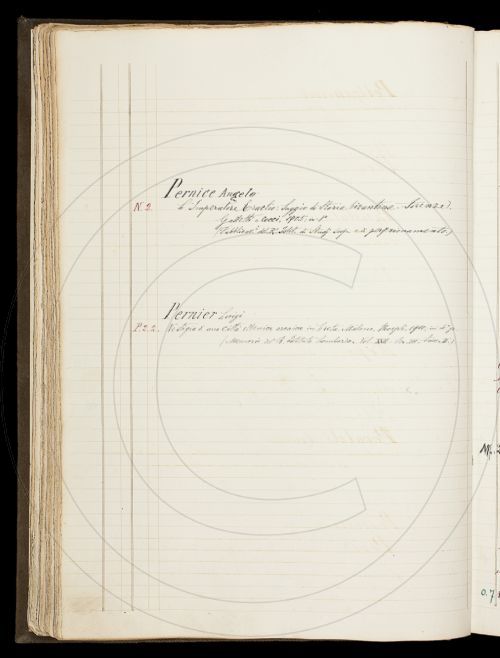 Pernice Angelo
N. 2. L'Imperatore Eraclio. Saggio di Storia bizantina. Firenze,
Galletti e Cocci, 1905, in 8°
(Pubblicaz. del R. Istit. di Studj sup. e di perfezionamento)
Pernier Luigi
P. 2. 2. Vestigia di una città ellenica arcaica in Creta. Milano, Hoepli, 1910, in 4°
(Memorie del R. Istituto Lombardo. Vol. XXII
N. 2
0.7